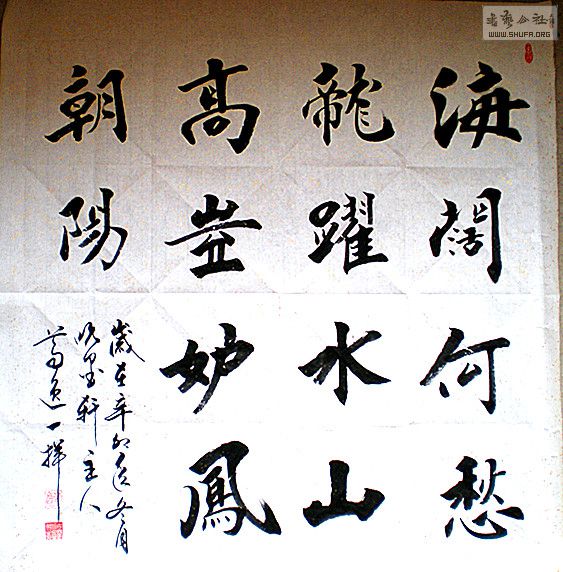 書藝公社
WWW.SHUFA.ORG
海闊何愁
龍躍水山
高豈妒鳳
朝陽
歲在辛卯冬月
墨軒主人
一揮